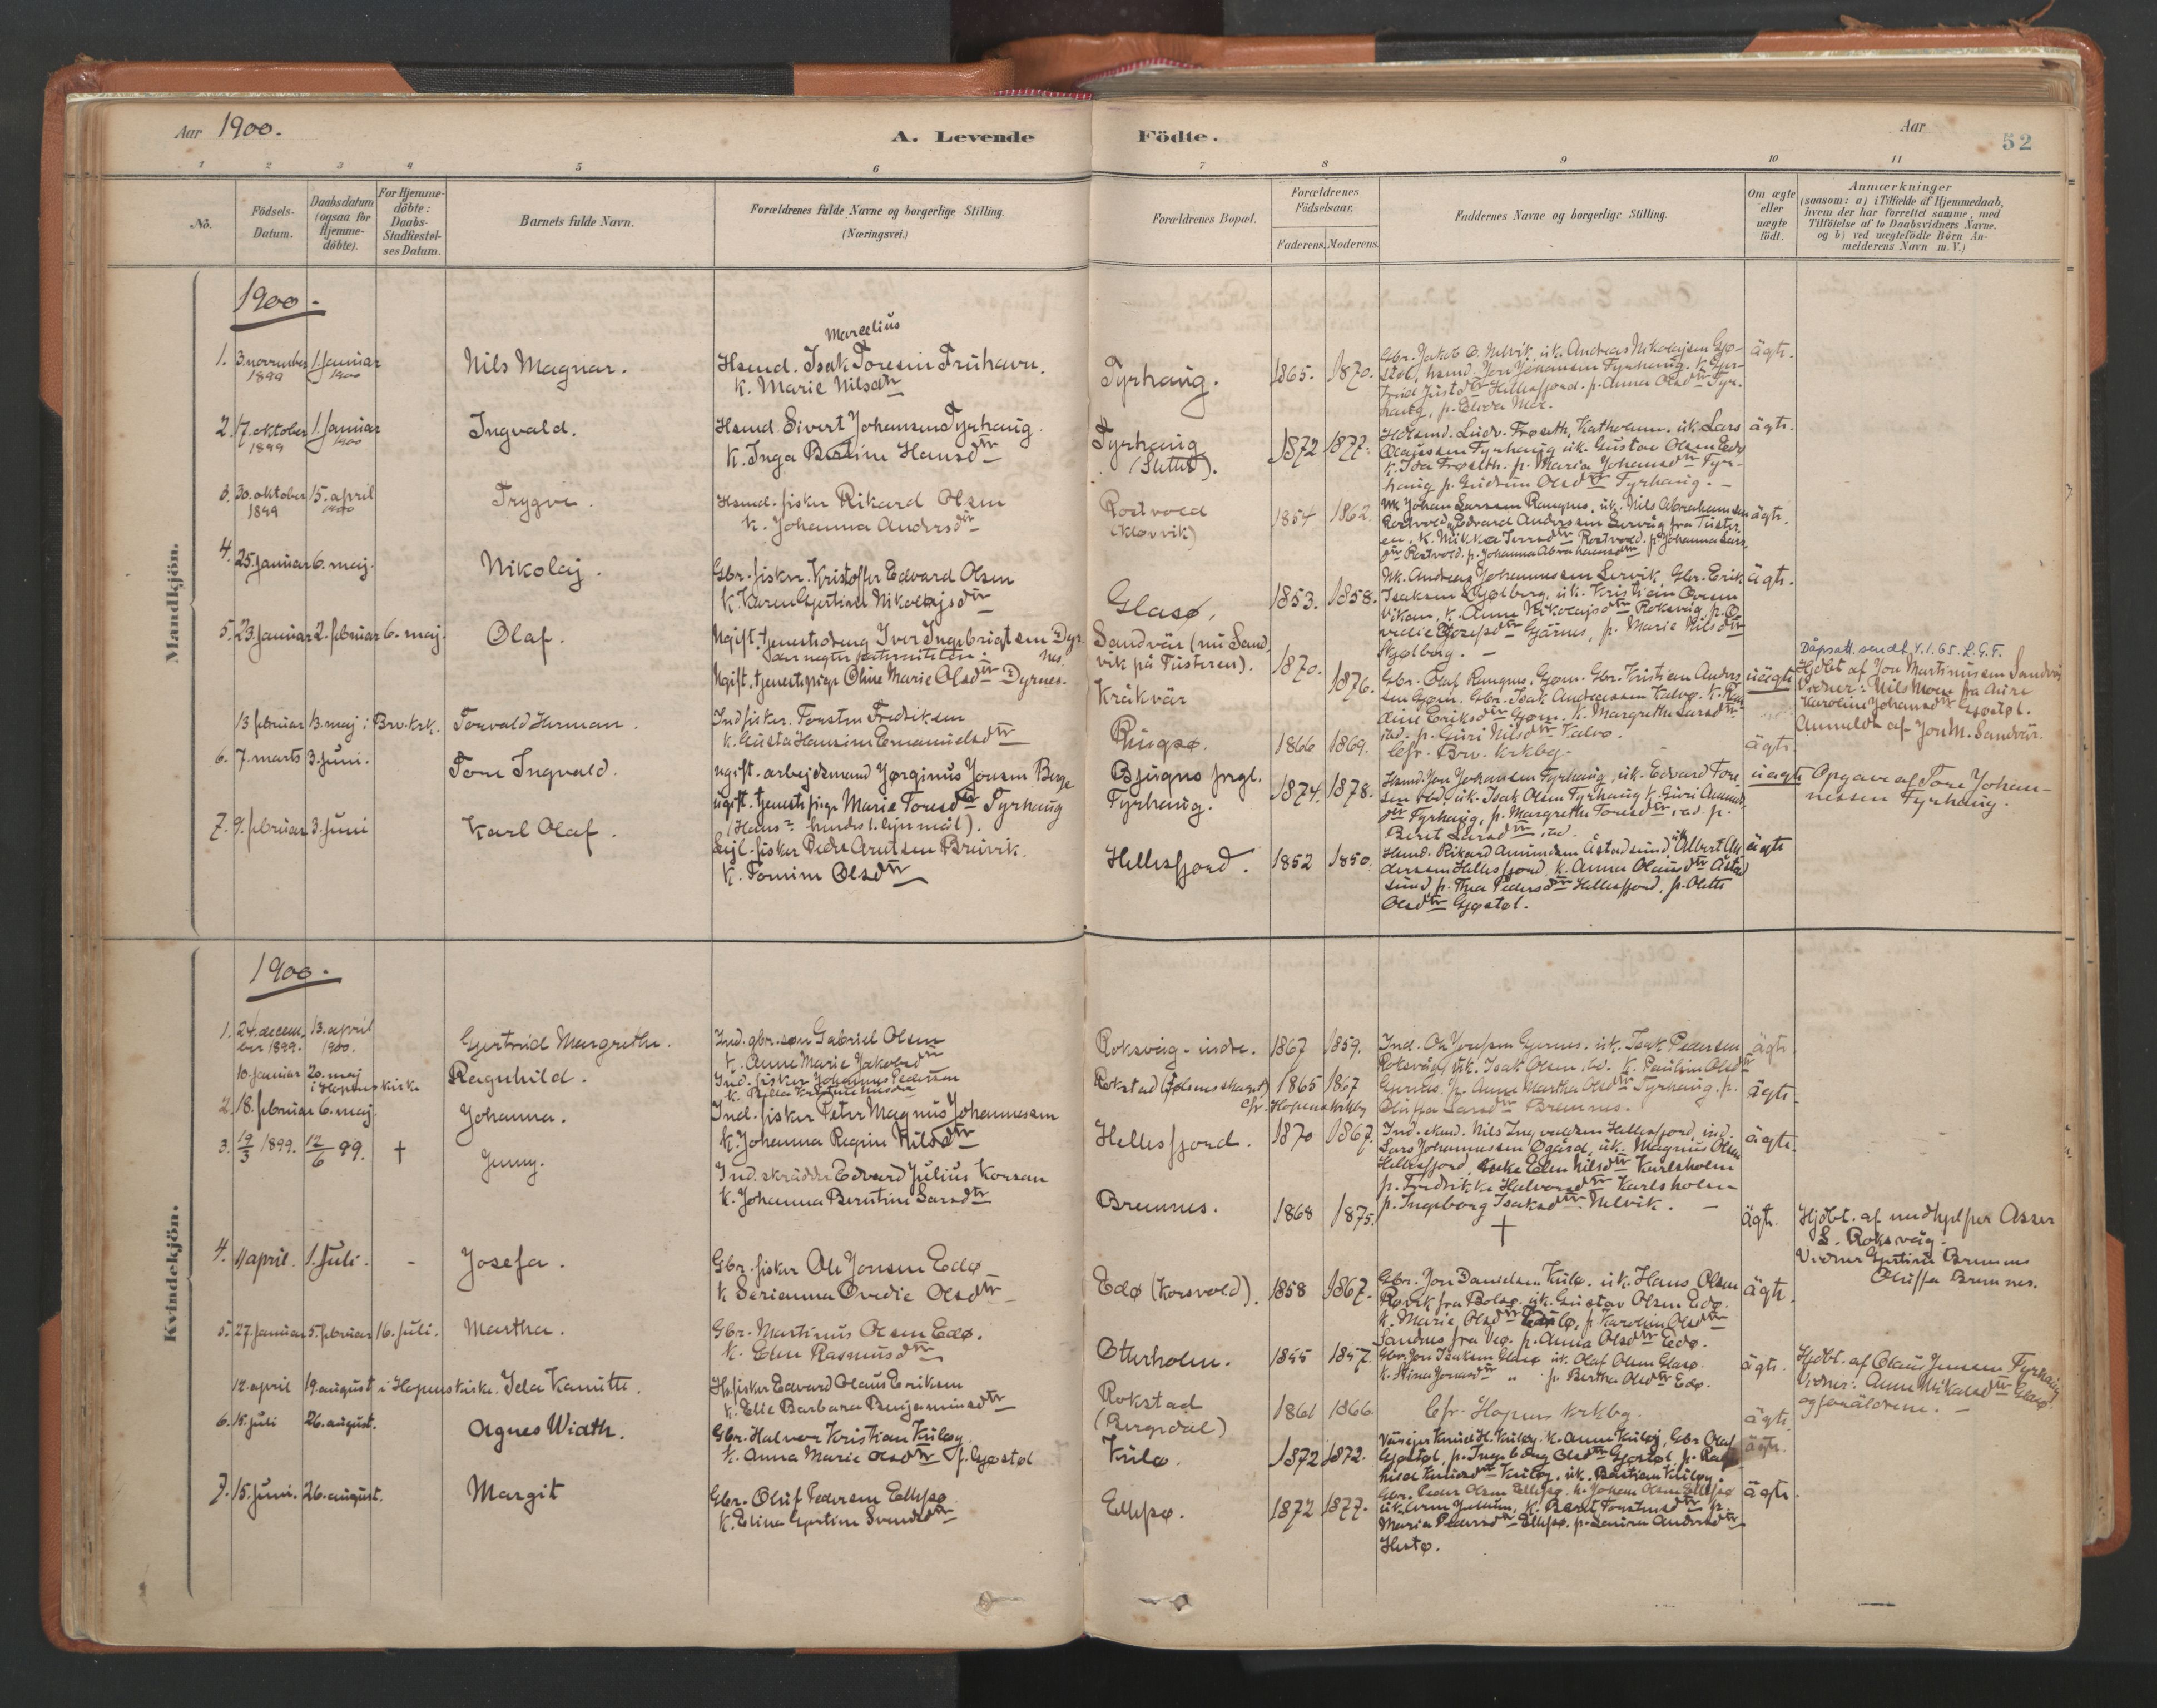 Aar 1900.
A. Levende
Födte.
Aar
52
1 2 3 4 5 6 7 8 9 10 11
No.
Födsels-
Datum.
Daabsdatum
(ogsaa for
Hjemme-
döbte).
For Hjemme-
döbte:
Daabs-
Stadfæstel-
ses Datum.
Barnets fulde Navn.
Forældrenes fulde Navne og borgerlige Stilling.
(Næringsvei.)
Forældrenes Bopæl.
Forældrenes
Födselsaar.
Faderens. Moderens.
Faddernes Navne og borgerlige Stilling.
Om ægte
eller
uægte
födt.
Anmærkninger
(saasom: a) i Tilfælde af Hjemmedaab,
hvem der har forrettet samme, med
Tilföielse af to Daabsvidners Navne.
og b) ved uægtefödte Börn An-
melderens Navn m. V.)
Mandkjön.
1900.
1. 3. november 1899
1. januar 1900
Nils Magnar.
Marcelius
Hsmd. Isak Toresen Fruhavn.
K. Marie Nilsdtr
Tyrhaug.
1865. 1870.
Gbr. Jakob O. Nelvik, uk. Andreas Nikolajsen Gjø-
støl, hsmd. Jon Johansen Tyrhaug. K. Gjer-
trud Justdtr Hellesfjord. p. Anna Olsdtr Tyr-
haug, p.
ägte.
2. 17. oktober 1899
1. januar 1900
Ingvald.
Hsmd. Sivert Johansen Tyrhaug.
K. Inga Bertine Hansdtr
Tyrhaug
(Slettet).
1872 1877.
Ludv. Frøseth, uk. Lars
Olaussen Tyrhaug uk. Gustav Olsen Edø
K. Ida Frøseth. p. Maria Johansdtr Tyr-
haug p. Gudrun Olsdtr Tyrhaug. -
ägte.
3. 30. oktober 1899
15. april 1900
Trygve.
Hsmd. fisker Rikard Olsen
K. Johanna Andersdtr
Rostvold
(Kløvvik)
1854 1862.
uk. Johan Larssen Rangnes, uk. Nils Abrahamsen
Rostvold, Edvard Anderssen Lervåg fra Tuster-
en, K. Rostvold. p. Johanna Lars-
dtr Rostvold. p. Johanna Abrahamsdtr
ägte.
4. 25. januar
6. maj.
Nikolaj.
Gbr. fisker. Kristoffer Edvard Olsen
K. Karen Gjertine Nikolajsdtr
Glasø.
1853. 1858.
Uk. Andreas Johannessen Lervik, Gbr. Erik
Isaksen Skjølberg, uk. Kristian
Vikan, K. Anne Nikolajsdtr Roksvåg, p. O-
vedie Josefsdtr Gjärnes, p. Marie Nilsdtr
Skjølberg. -
ägte.
5. 23. januar
2. februar
6. maj.
Olaf.
Ugift. tjenestedreng Iver Ingebrigtsen Dyr-
nes
der negter paterniteten.
Ugift. tjenestepige Oline Marie Olsdtr Dyrnes.
Sandvär (nu Sand-
vik på Tusteren).
Kråkvär
1870. 1876.
Gbr. Olaf Rangnes, Gjøm. Gbr. Kristian Anders-
sen Gjøm. Gbr. Isak Andreassen Kalvø. K.
dine Eriksdtr Gjøm. K. Margrethe Larsdtr
ibd. p. Guri Nilsdtr Kalvø.
uägte
Dåpsatt. sendt 4.1.65. L.G.F.
Hjdbt af Jon Martinussen Sandvär
Vidner: Nils Moen fra Aure
Karoline Johansdtr Gjøstøl.
Anmeldt af Jon M. Sandvär.
13 februar
13. maj i Brv. krk.
Torvald Herman.
Ind. fisker. Torsten Fredriksen
K. Gusta Hansine Emanuelsdtr
Ringsø.
1866 1869.
Cfr. Brv. krkbg.
ägte
6. 7. marts
3. juni.
Tore Ingvald.
Ugift. arbejdsmand Jørginus Jonsen Berge
ugift. tjenestepige Marie Toresdtr Tyrhaug
(Hans 2. hendes 1. lejermål).
Bjugns prgl.
Tyrhaug.
1874. 1878.
Hsmd. Jon Johansen Tyrhaug, uk. Edvard Tore-
sen ibd. uk. Isak Olsen Tyrhaug K. Guri Amunds-
dtr Tyrhaug, p. Margrethe Toresdtr, ibd. p.
Beret Larsdtr, ibd.
uägte
Opgave af Tore Johan-
nessen Tyrhaug.
7. 9. februar
3. juni
Karl Olaf.
Sejl. fisker Peder Arntsen Breivik.
K. Tomine Olsdtr
Hellesfjord.
1852 1850.
Hsmd. Rikard Amundsen Åstadsund uk Albert An-
dersen Hellesfjord, K. Anna Olausdtr Åstad-
sund p. Thea Pedersdtr Hellesfjord, p. Olette
Olsdtr Gjøstøl.
ägte
Kvindekjön.
1900.
1. 24. decem-
ber 1899.
13. april
1900.
Gjertrud Margrethe.
Ind. gbr. søn Gabriel Olsen
K. Anne Marie Jakobsdtr
Roksvåg - indre.
1867 1859.
Ind. Ole Josefsen Gjernes. uk. Isak Pedersen
Roksvåg, uk. Isak Olsen, ibd. K. Pauline Olsdtr
Gjernes. p. Anne Martha Olsdtr Tyrhaug. p.
Oluffa Larsdtr Bremnes.
ägte.
10. januar
20. maj
i Hopens kirke
Ragnhild.
Ind. fisker Johannes Pedersen
Rokstad
1865 1867
cfr. Hopens krkbg
ägte.
2. 18. februar
6. maj.
Johanna.
Ind. fisker Peter Magnus Johannessen
K. Johanna Regine Nilsdtr
Hellesfjord.
1870 1867.
Ind. Nils Ingvaldsen Hellesfjord, ind.
Lars Johannessen Øgård, uk. Magnus Olsen
Hellesfjord, Enke Elen Nilsdtr Karlsholm
p. Fredrikke Halvorsdtr Karlsholm
p. Ingeborg Isaksdtr Nelvik. -
ägte.
3. 19/3 1899.
12/6 99.
†
Jenny.
Ind. skrädder Edvard Julius Korsan
K. Johanna Berntine Larsdtr
Bremnes.
1868 1875.
†
ägte.
Hjdbt. af medhjelper Asser
L. Roksvåg.
Vidner Gjertine Bremnes
Oluffa Bremnes.
4. 11 april.
1. Juli.
-
Josefa.
Gbr. fisker Ole Jonsen Edø
K Serianna Ovedie Olsdtr
Edø (Korsvold).
1858 1867.
Gbr. Jon Danielsen Kulø. uk. Hans Olsen
Røvik fra Bolsø. uk. Gustav Olsen Edø.
K. Marie Olsdtr Edø, p. Karoline Olsdtr
Sandnes fra Veø. p. Anna Olsdtr Edø.
ägte.
5. 27. januar
5. februar
16. juli.
Martha.
Gbr. Martinus Olsen Edø.
K. Elen Rasmusdtr
Otterholm.
1845 1857.
Gbr. Jon Isaksen Glasø uk. Olaf Olsen Glasø.
K. Stina Jonasdtr " p. Bertha Olsdtr Edø.
ägte.
Hjdbt. af Olaus Jensen Tyrhaug
Vidner: Anne Nikolajsdtr Glasø
og forældrene. -
12. april
19. august i Hopens kirke.
Ida Kanutte.
Hs. fisker Edvard Olaus Eriksen
K. Elie Barbara Benjaminsdtr
Rokstad
(Bergsdal)
1861 1866.
Cfr. Hopens krkbg.
ägte
6. 15. juli
26. august.
Agnes Wiath.
Gbr. Halvor Kristian Kuløy
K. Anna Marie Olsdtr f. Gjøstøl
Kulø.
1872 1872.
Knud H. Kuløy. K. Anne Kuløy, Gbr Olaf
Gjøstøl, p. Ingeborg Olsdtr Gjøstøl, p. Ragn-
hild Knudsdtr Kuløy. uk. Bastian Kuløy.
ägte.
7. 15. juni.
26. august.
Margit
Gbr. Oluf Pedersen Ellipsø
K. Elina Gjertine Svendsdtr
Ellipsø.
1872 1877.
Gbr. Peder Olsen Ellipsø. K. Johan Olsen Ellipsø
K. Berit Torstensdtr p.
Maria Pedersdtr Ellipsø. p. Laura Andersdtr
Hestø.
ägte.